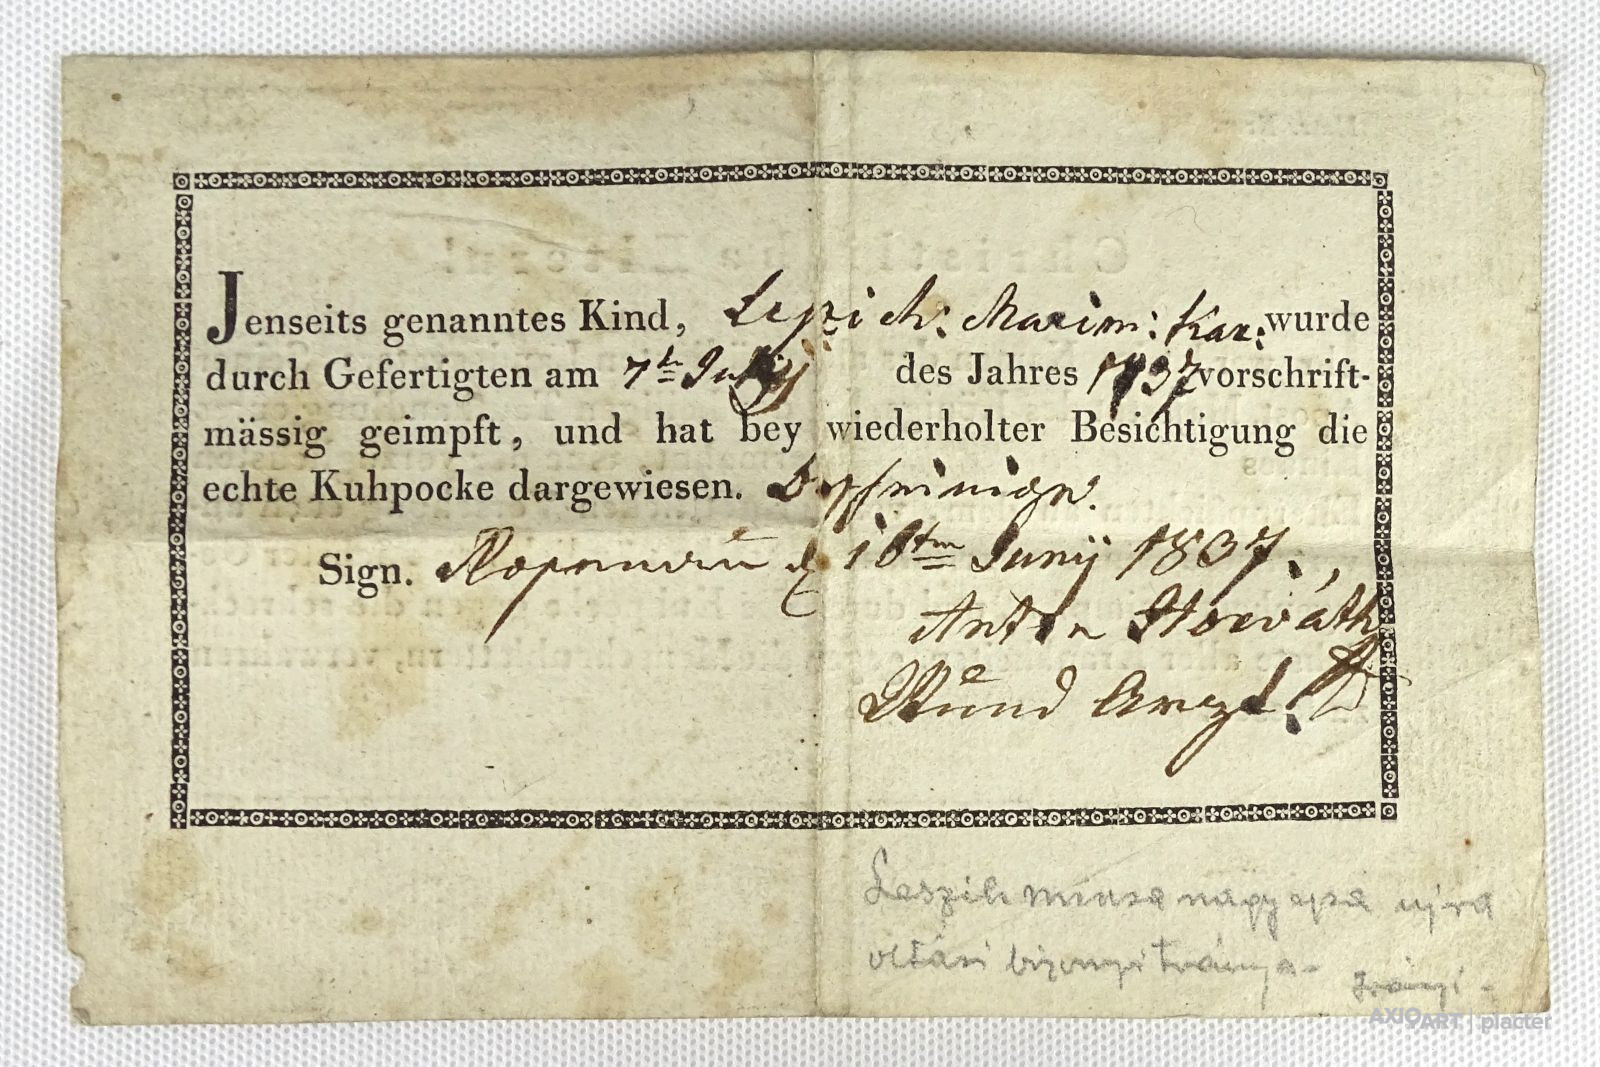 Jenseits genanntes Kind, Maxim: Kar: wurde
durch Gefertigten am 7t des Jahres 1837 vorschrift-
mässig geimpft, und hat bey wiederholter Besichtigung die
echte Kuhpocke dargewiesen.
Sign. 16tm Junÿ 1837.
Anton Horváth
Wund Arzt.
nagy apa ujra
oltási bizonyitványa-
AXIOART | placter